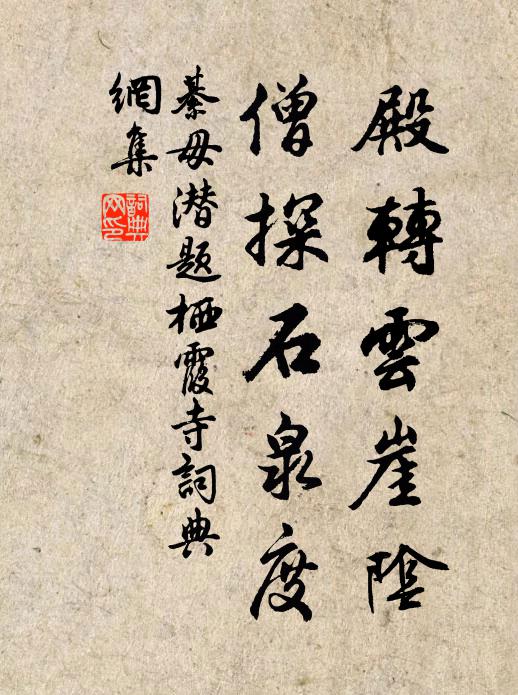 殿轉雲崖陰
僧探石泉度
綦毋潛題栖霞寺詞典
網集
詞典網印